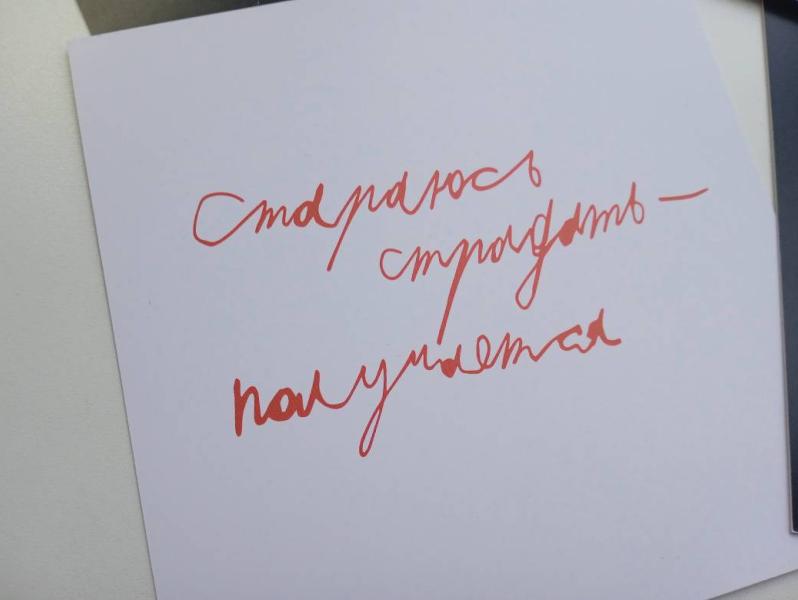 Стараюсь
страдать —
получается